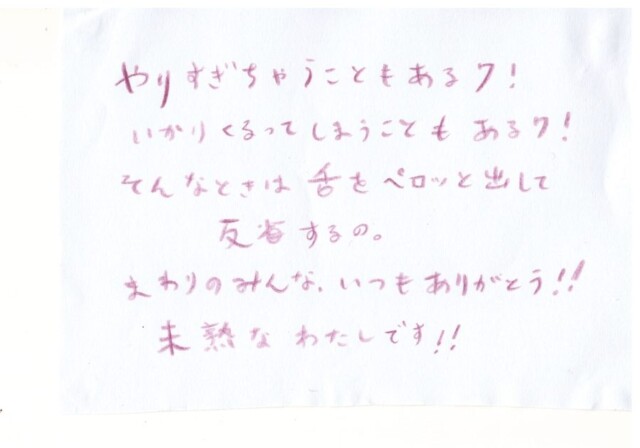 やりすぎちゃうこともあるワ!
いかりくるってしまうことも あるワ!
そんなときは 舌をペロッと出して
反省するの。
まわりのみんな、いつもありがとう!!
未熟な わたしです!!